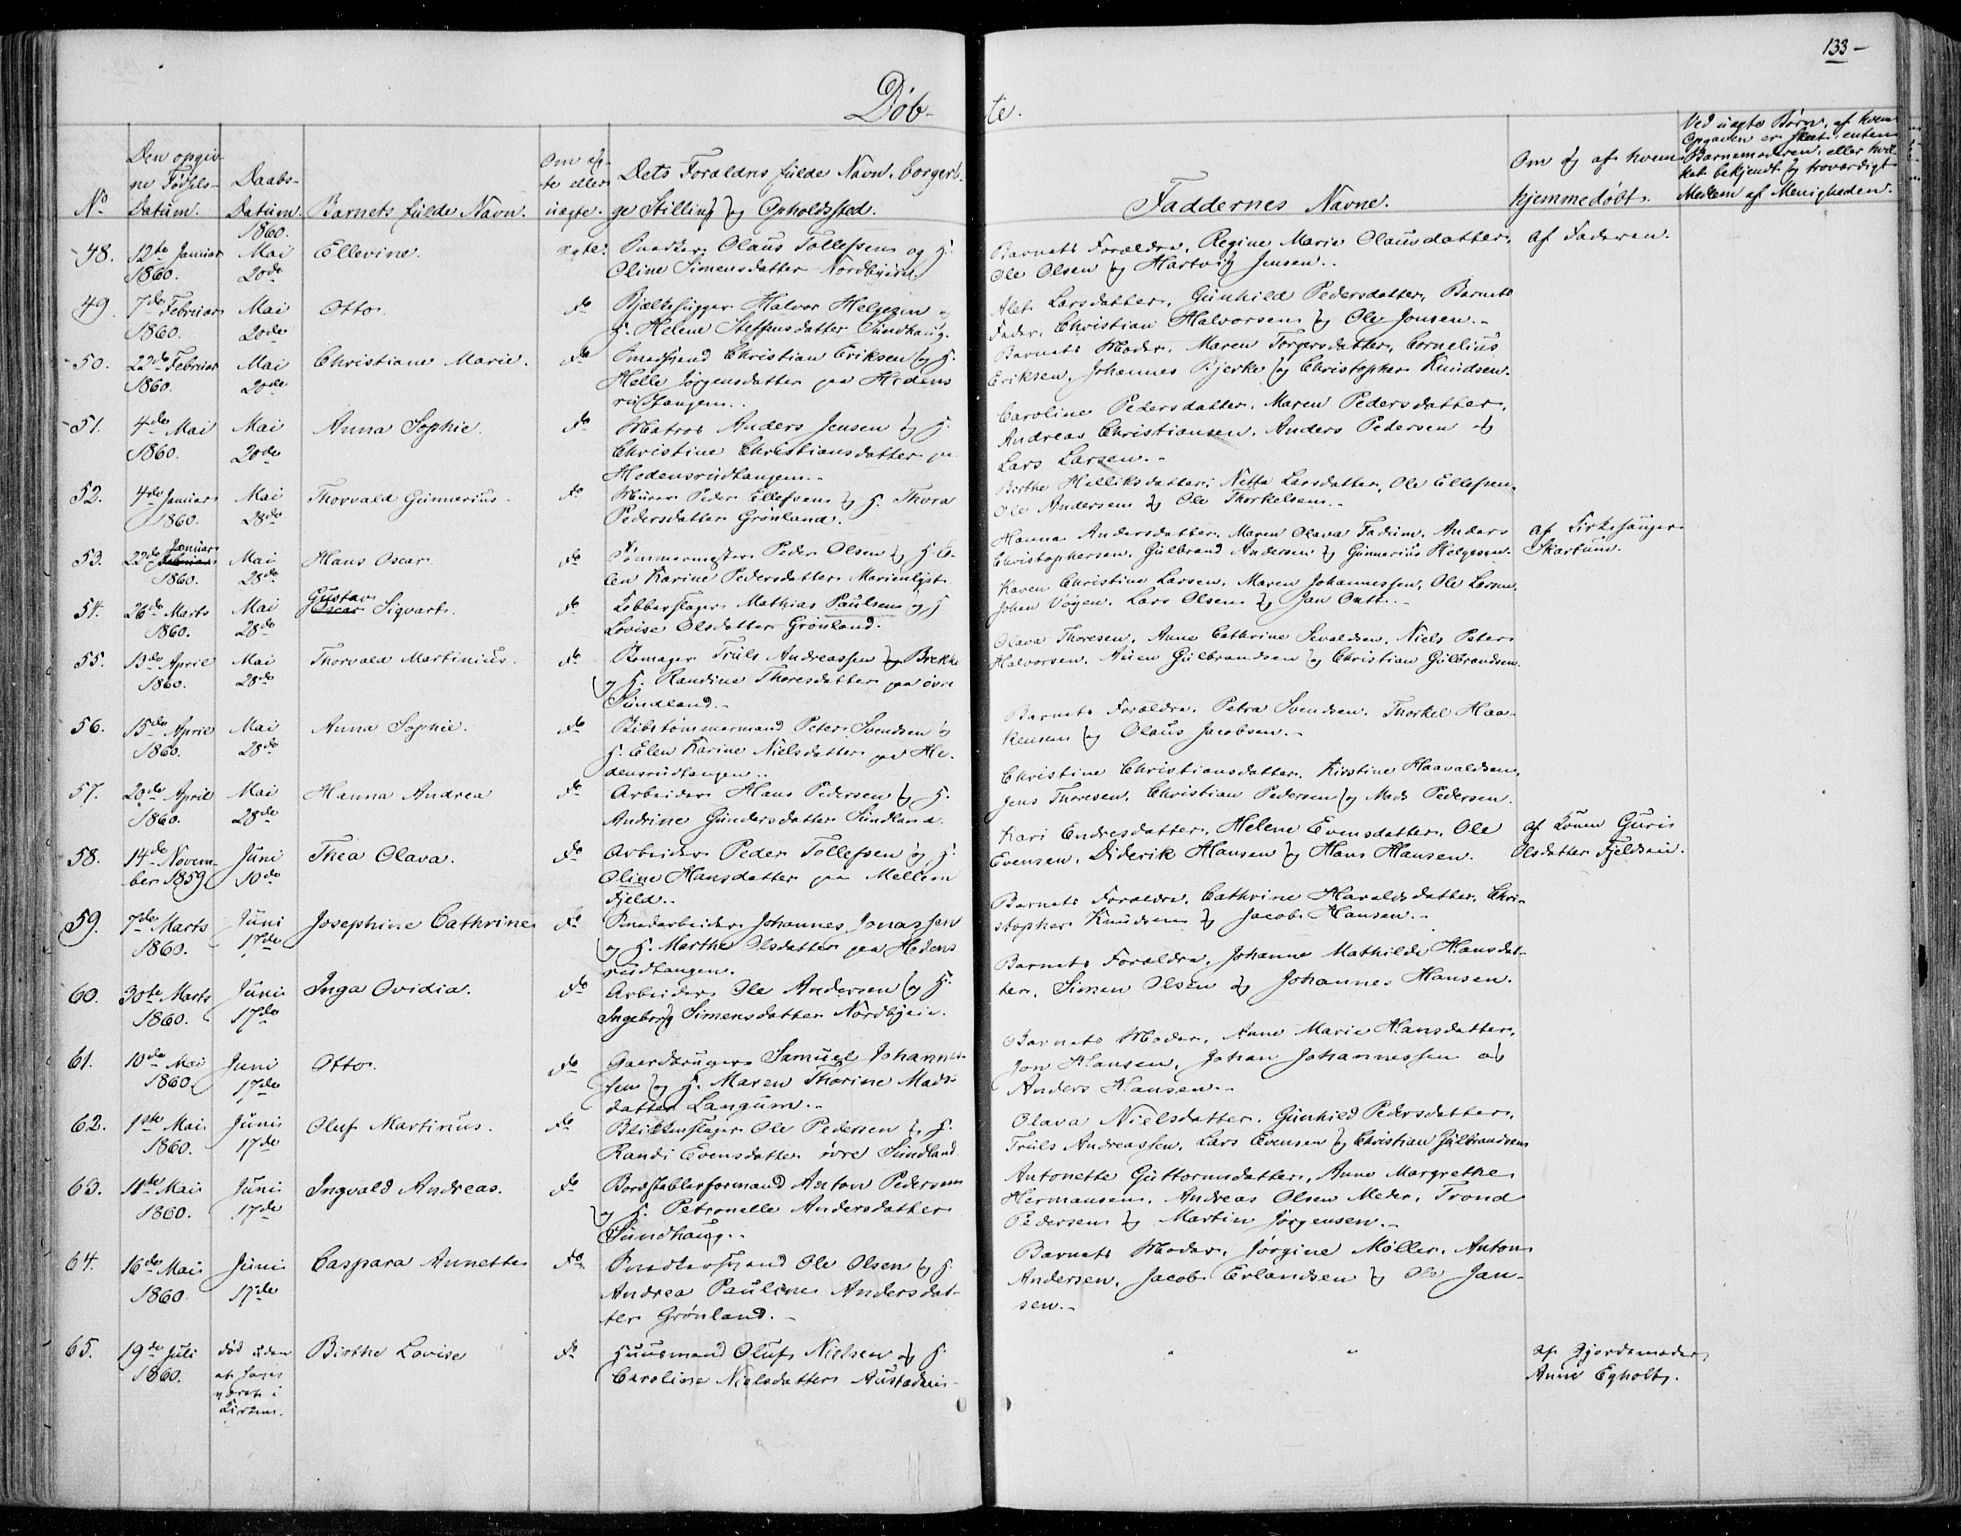 133 –
Döb-
te.
No
Den opgiv-
ne Födsels-
Datum.
Daabs-
Datum.
1860.
Barnets fulde Navn.
Om æg-
te eller
uægte.
Dets Forældres fulde Navn, borgerli-
ge Stilling og Opholdssted.
Faddernes Navne.
Om og af hvem
hjemmedöbt.
Ved uægte Börn, af hvem
Opgaven er skeet, enten
Barnemoderen, eller hvil-
ket bekjendt og troværdigt
Medlem af Menigheden.
48. 12te Januar
1860.
Mai
20de
Ellevine.
ægte.
Snedker Olaus Tollefsen og H.
Oline Simensdatter Nordbyeien
Barnets Forældre, Regine Marie Olausdatter,
Ole Olsen og Hartvig Jensen.
af Faderen.
49. 7de Februar
1860.
Mai
20de
Otto.
do
Bjelkehugger Halvor Helgesen og
H. Helene Steffensdatter Sundhaug.
Alet Larsdatter, Gunhild Pedersdatter, Barnets
Fader, Christian Halvorsen og Ole Jonsen.
50. 22de Februar
1860.
Mai
20de
Christiane Marie.
do
Smedsvend Christian Eriksen og H.
Helle Jörgensdatter paa Hedens
rudtangen.
Barnets Moder, Maren Torgersdatter, Cornelius
Eriksen, Johannes Bjerke og Christopher Knudsen.
51. 4de Mai
1860.
Mai
20de
Anna Sophie.
do
Matros Anders Jensen og H.
Christine Christiansdatter paa
Hedensrudtangen.
Caroline Pedersdatter, Maren Pedersdatter,
Andreas Christiansen, Anders Pedersen og
Lars Larsen.
52. 4de Januar
1860.
Mai
28de
Thorvald Gunnerius.
do
Murer Peder Ellefsen og H. Thora
Pedersdatter Grönland.
Birthe Helliksdatter, Netta Larsdatter, Ole Ellefsen,
Ole Andersen og Ole Thorkelsen.
53. 22de Januar
Februar
1860.
Mai
28de
Hans Oscar
do
Tömmermester Peder Olsen og H. El-
len Karine Pedersdatter Marienlyst.
Hanna Andersdatter, Maren Olava Fadum, Anders
Christophersen, Gulbrand Andersen og Gunnerius Helgesen.
af Kirkesanger
Skartum.
54. 26de Marts
1860.
Mai
28de
Gustav
Oscar Sigvart.
do
Kobberslager Mathias Paulsen og H
Lovise Olsdatter Grönland.
Karen Christine Larsen, Maren Johannessen, Ole Larsen,
Johan Vögen, Lars Olsen og Jan
55. 13de April
1860.
Mai
28de
Thorvald Martinius.
do
Skomager Truls Andreassen Brekke
og H. Randine Thoresdatter paa övre
Sundland.
Olava Thoresen, Anne Cathrine Sevaldsen, Niels Peter
Halvorsen, Auen Gulbrandsen og Christian Gulbrandsen.
56. 15de April
1860.
Mai
28de
Anna Sophie.
do
Skibstömmermand Peter Svendsen og
H. Elen Karine Nielsdatter paa He-
densrudtangen.
Barnets Forældre, Petra Svendsen, Thorkel Haa-
kensen og Olaus Jacobsen.
57. 20de April
1860.
Mai
28de
Hanna Andrea
do
Arbeider Hans Pedersen og H.
Andrine Gundersdatter Sundland.
Christine Christiansdatter, Kirstine Haavaldsen,
Jens Thoresen, Christian Pedersen og Mads Pedersen.
58. 14de Novem-
ber 1859.
Juni
10de
Thea Olava.
do
Arbeider Peder Tollefsen og H.
Oline Hansdatter paa Mellem
Fjeld.
Kari Endresdatter, Helene Evensdatter, Ole
Evensen, Diderik Hansen og Hans Hansen.
af Konen Guri
Olsdatter Fjeldveien.
59. 7de Marts
1860.
Juni
17de
Josephine Cathrine
do
Smedarbeider Johannes Jonassen
og H. Marthe Olsdatter paa Hedens
rudtangen.
Barnets Forældre, Cathrine Haraldsdatter, Chri-
stopher Knudsen og Jacob Hansen.
60. 30te Marts
1860.
Juni
17de
Inga Ovidia.
do
Arbeider Ole Andersen og H.
Ingeborg Simensdatter Nordbyein.
Barnets Forældre, Johanne Mathilde Hansdat-
ter, Simen Olsen og Johannes Hansen.
61. 10de Mai
1860.
Juni
17de
Otto.
do
Gaardbruger Samuel Johannes-
sen og H. Maren Thorine Mads-
datter Langum.
Barnets Moder, Anne Marie Hansdatter,
Jon Hansen, Johan Johannessen og
Anders Hansen.
62. 1ste Mai
1860.
Juni
17de
Oluf Martinus.
do
Blikkenslager Ole Pedersen og H.
Randi Evensdatter övre Sundland
Olava Nielsdatter, Gunhild Pedersdatter,
Truls Andreassen, Lars Evensen og Christian Gulbrandsen
63. 11te Mai
1860.
Juni
17de
Ingvald Andreas.
do
Bordstablerformand Anton Pedersen
og H. Petronelle Andersdatter
Sundhaug.
Antonette Guttormsdatter, Anne Margrethe
Hermansen, Andreas Olsen Meder, Trond
Pedersen og Martin Jörgensen.
64. 16de Mai
1860.
Juni
17de
Caspara Annette
do
Snedkersvend Ole Olsen og H.
Andrea Pauline Andersdat-
ter Grönland.
Barnets Moder, Jörgine Möller, Anton
Andersen, Jacob Erlandsen og Ole Jan-
sen.
65. 19de Juli
1860.
död uden
at have
været i
Kirken.
Birthe Lovise
do
Huusmand Oluf Nielsen og H.
Caroline Nielsdatter
" "
af Gjordemoder
Anne Egholt.